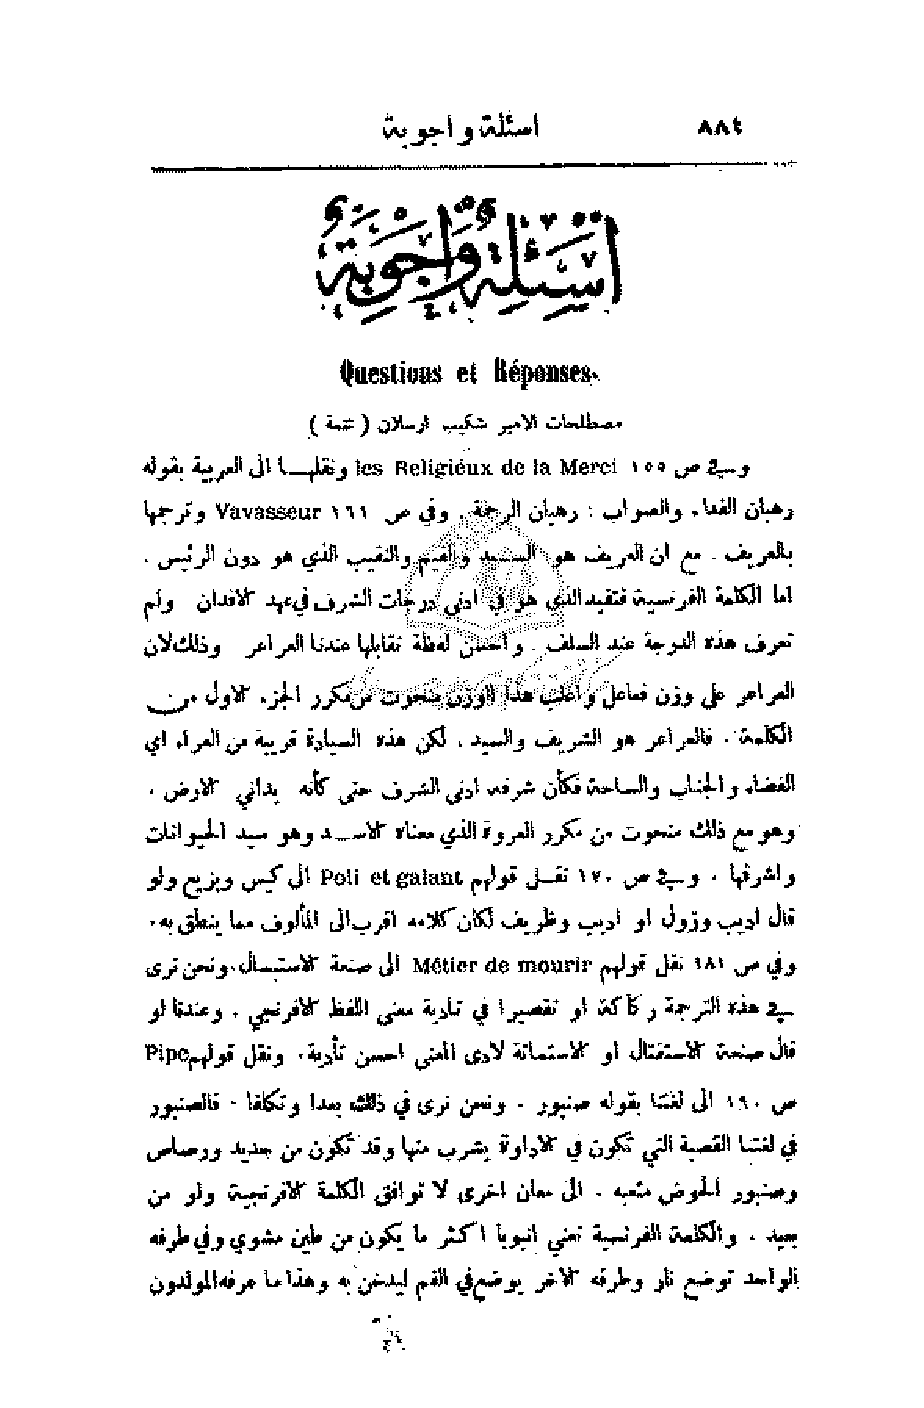 ٨٨٤ اسئلة واجوبة
أَسْئِلَةٌ وَأَجْوِبَةٌ
Questions et Réponses.
مصطلحات الامير شكيب ارسلان ( تتمة )
وفي ص ١٥٥ les Religiéux de la Merci ونقلها الى العربية بقوله
رهبان الفداء. والصواب : رهبان الرحمة. وفي ص ١٦١ Vavasseur وترجمها
بالعريف. مع ان العريف هو السيد والقيم والنقيب الذي هو دون الرئيس.
اما الكلمة الفرنسية فتفيد الذي هو في ادنى درجات الشرف في عهد الافدان ولم
تعرف هذه الدرجة عند السلف. واحسن لفظة تقابلها عندنا العراعر وذلك لان
العراعر على وزن فعاعل واغلب هذا الوزن منحوت من مكرر الجزء الاول من
الكلمة. فالعراعر هو الشريف والسيد. لكن هذه السيادة قريبة من العراء اي
الفضاء والجناب والساحة فكأن شرفه ادنى الشرف حتى كأنه يداني الارض،
وهو مع ذلك منحوت من مكرر العروة الذي معناه الاسد وهو سيد الحيوانات
واشرفها. وفي ص ١٧٠ نقل قولهم Poli et galant الى كيس وبزيع ولو
قال اديب وزول او اديب وظريف لكان كلامه اقرب الى المألوف مما ينطق به.
وفي ص ١٨١ نقل قولهم Métier de mourir الى صنعة الاستبسال. ونحن نرى
في هذه الترجمة ركاكة او تقصيرا في تادية معنى اللفظ الافرنجي. وعندنا لو
قال صنعة الاستقتال او الاستماتة لادى المعنى احسن تأدية. ونقل قولهم Pipe
ص ١٩٠ الى لغتنا بقوله صنبور. ونحن نرى في ذلك بعدا وتكلفا. فالصنبور
في لغتنا القصبة التي تكون في الاداوة يشرب منها وقد تكون من حديد ورصاص
وصنبور الحوض مثعبه. الى معان اخرى لا توافق الكلمة الافرنجية ولو من
بعيد. والكلمة الفرنسية تعني انبوبا اكثر ما يكون من طين مشوي وفي طرفه
الواحد توضع نار وطرفه الآخر يوضع في الفم ليدخن به وهذا ما عرفه المولدون